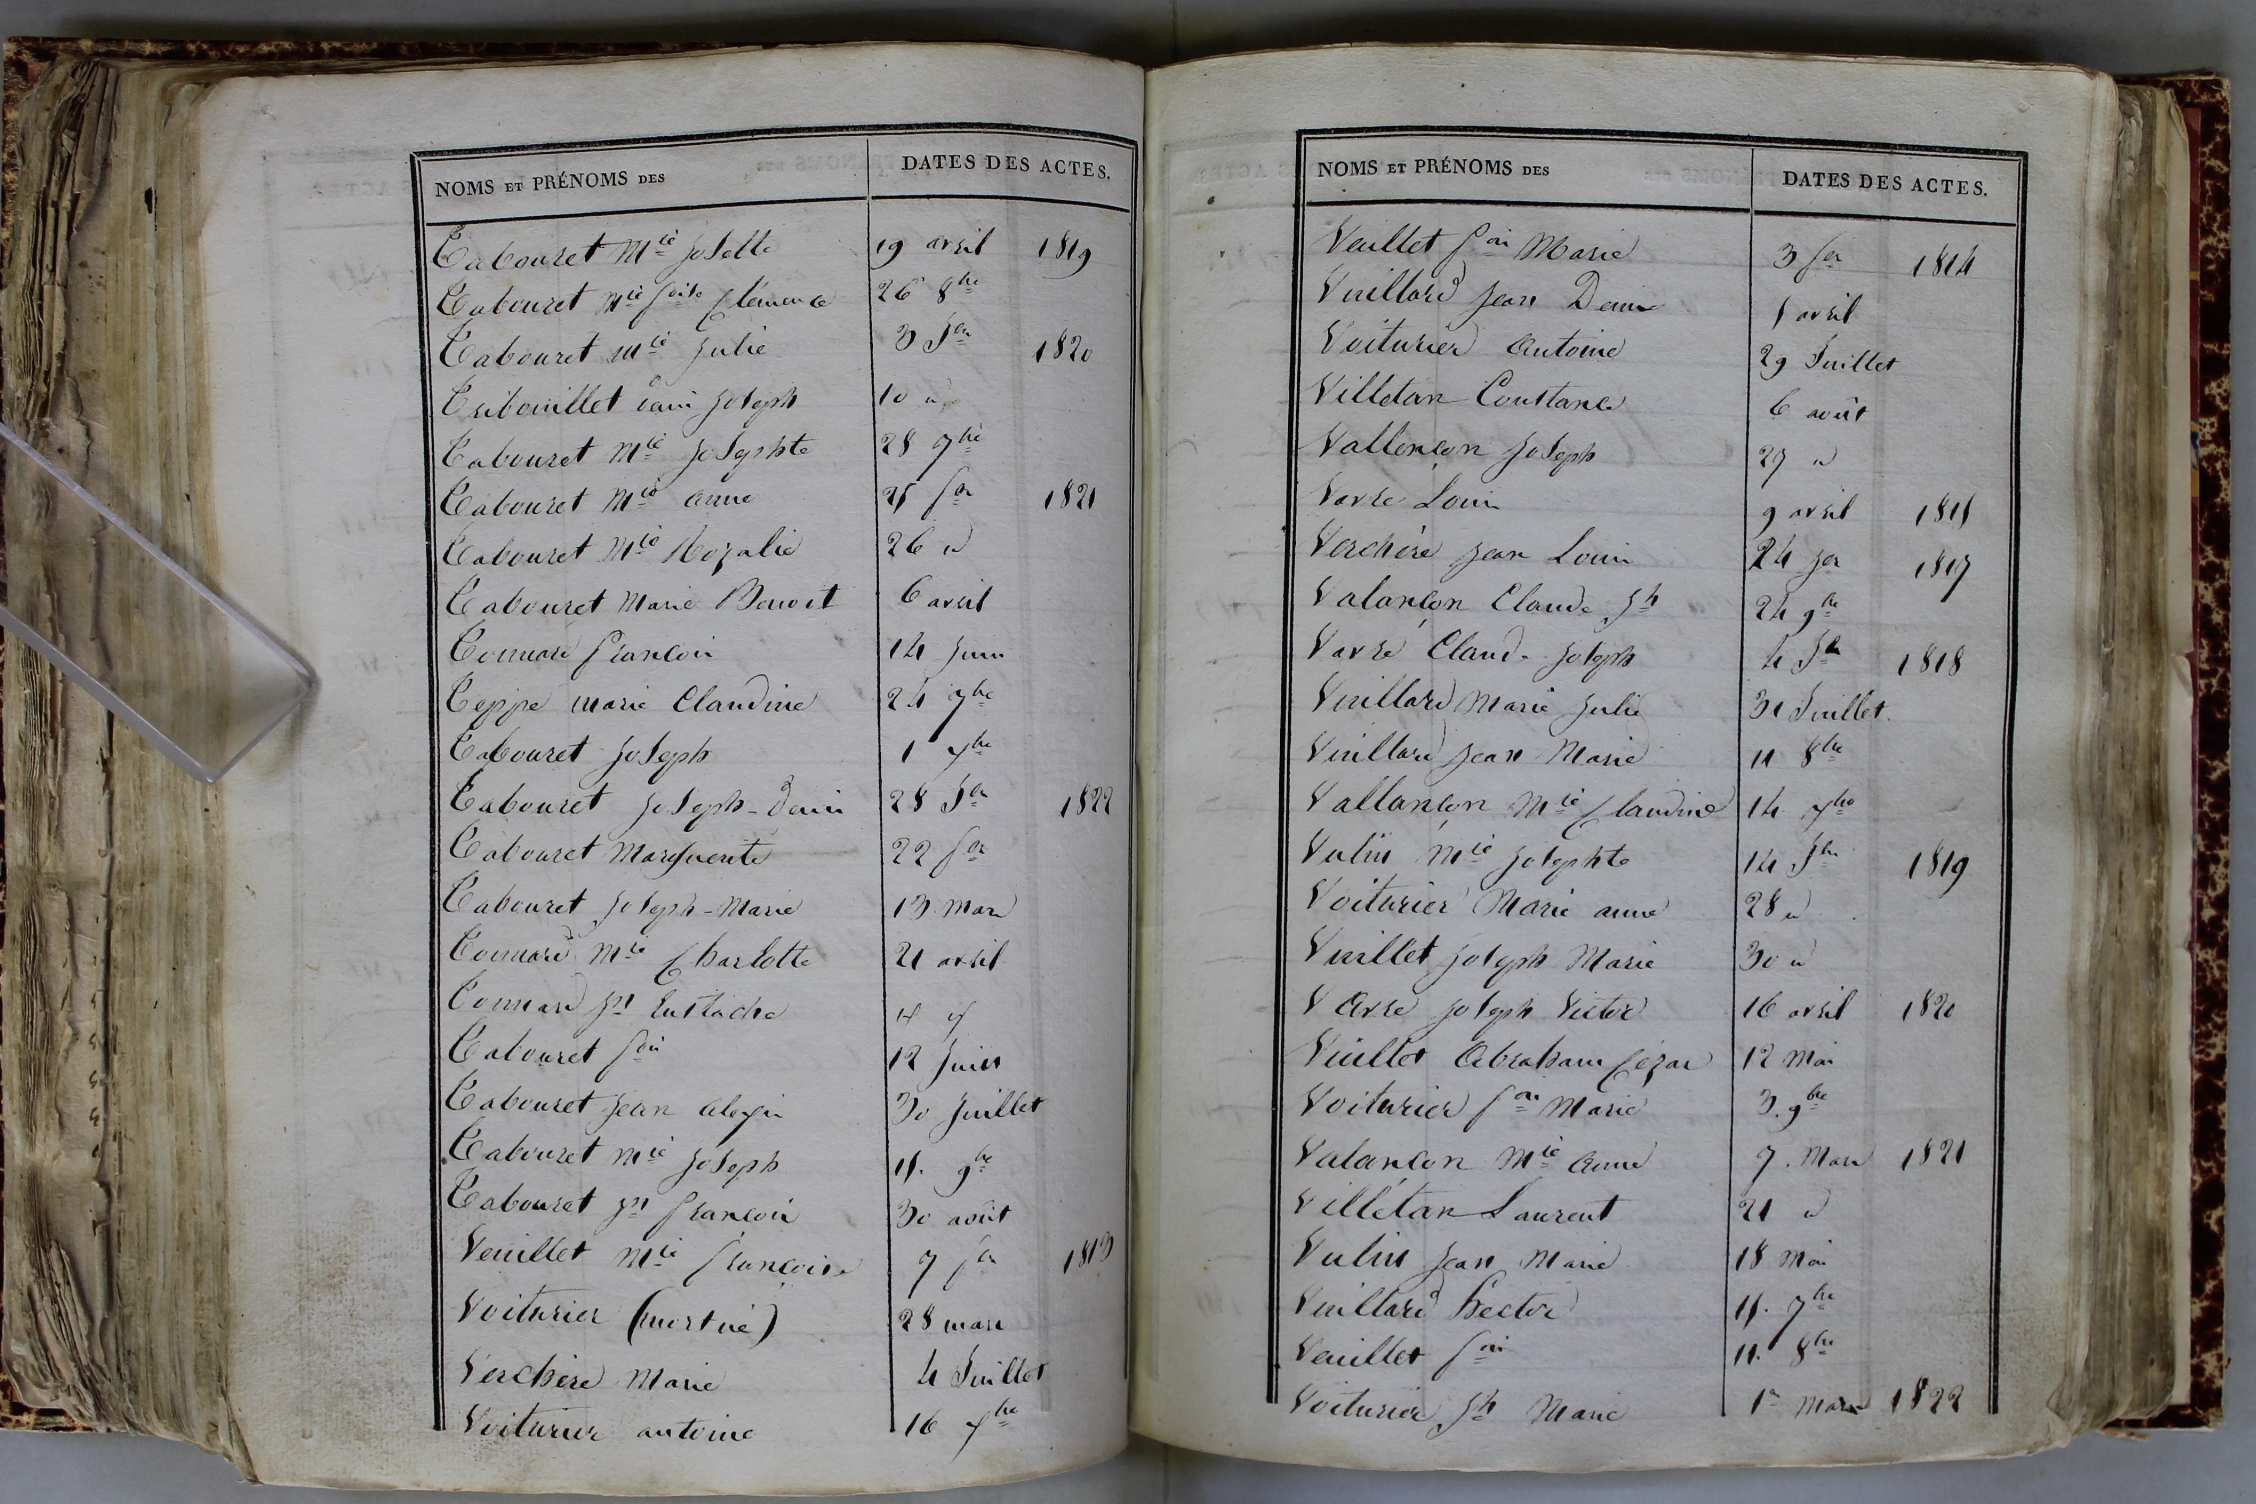 NOMS ET PRÉNOMS DES DATES DES ACTES.
Tabouret Mie Josette 19 avril 1819
Tabouret Mie Foise Clémence 26 8bre
Tabouret Mie Julie 3 Jer 1820
Tribouillet Denis Joseph 10 d
Tabouret Mie Josephte 28 7bre
Tabouret Mie anne 25 fer 1821
Tabouret Mie Rozalie 26 d
Tabouret Marie Benoit 6 avril
Tonnard françois 14 Juin
Teppe marie Claudine 24 7bre
Tabouret Joseph 1 xbre
Tabouret Joseph-Denis 28 Jer 1822
Tabouret Marguerite 22 fer
Tabouret Joseph-Marie 13 Mars
Tonnard Mie Charlotte 21 avril
Tonnard Jn Eustache
Tabouret fois 12 Juin
Tabouret Jean alexis 30 Juillet
Tabouret Mie Joseph 11. 9bre
Tabouret Jn françois 30 août
Veuillet Mie françoise 7 fer 1813
Voiturier (mort né) 28 mars
Verchère Marie 4 Juillet
Voiturier antoine 16 xbre
NOMS ET PRÉNOMS DES DATES DES ACTES.
Veuillet fois Marie 3 fer 1814
Vuillard Jean Denis 1 avril
Voiturier Antoine 29 Juillet
Villetan Constance 6 août
Vallençon Joseph 27 d
Vavre Louis 9 avril 1815
Verchère Jean Louis 24 Jer 1817
Valançon Claude Jh 24 9bre
Vavre Claude Joseph 4 Jer 1818
Vuillard Marie Julie 31 Juillet
Vuillard Jean Marie 11 8bre
Vallançon Mie Claudine 14 xbre
Vulin Mie Josephte 14 Jer 1819
Voiturier Marie anne 28 d
Vuillet Joseph Marie 30 d
Vavre Joseph Victor 16 avril 1820
Vuillet Abraham Cézar 12 Mai
Voiturier fois Marie 3. 9bre
Valançon Mie Anne 7. Mars 1821
Villetan Laurent 21 d
Vulin Jean Marie 18 Mai
Vuillard hector 11. 7bre
Veuillet fois 11. 8bre
Voiturier Jh Marie 1r Mars 1822